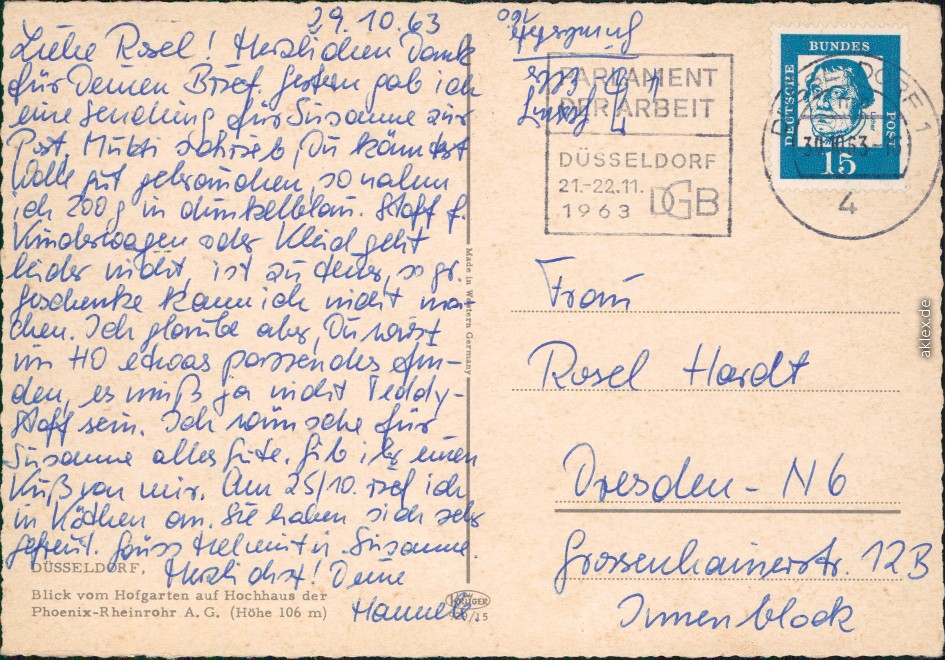 29.10.63
Liebe Rosel! Herzlichen Dank
für Deinen Brief. Gestern gab ich
eine Sendung für Susanne zur
Post. Mutti schrieb, Du könntest
Wolle gut gebrauchen, so nahm
ich 200 g in dunkelblau. Stoff f.
Kinderwagen oder Kleid geht
leider nicht ist zu teuer, so gr.
Geschenke kann ich nicht ma-
chen. Ich glaube aber, Du wirst
im HO etwas passendes fin-
den, es muß ja nicht Teddy-
stoff sein. Ich wünsche für
Susanne alles Gute. Gib ihr einen
Kuß von mir. Am 25/10. rief ich
in Köthen an. Sie haben sich sehr
gefreut. Grüss Helmut u. Susanne.
Herzlichst! Deine
Hannel
DÜSSELDORF,
Blick vom Hofgarten auf Hochhaus der
Phoenix-Rheinrohr A. G. (Höhe 106 m)
Made in Western Germany
KRÜGER
PARLAMENT
DER ARBEIT
DÜSSELDORF
21.-22.11.
1963 DGB
DEUTSCHE
BUNDES
POST
15
4
Frau
Rosel Hardt
Dresden - N 6
Grossenhainerstr. 12 B
Innenblock
aklex.de